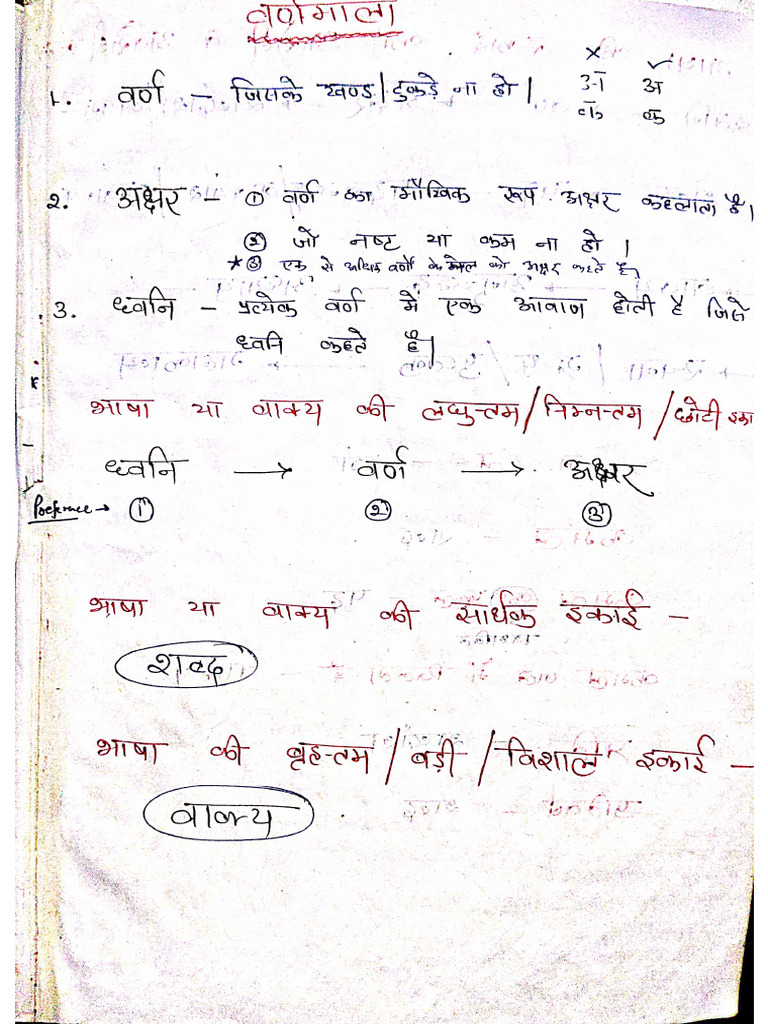 वर्णमाला
× ✓
1. वर्ण - जिसके खण्ड / टुकड़े ना हो। अ अ
क क
2. अक्षर - ① वर्ण का मौखिक रूप अक्षर कहलाता है।
② जो नष्ट या कम ना हो।
★③ एक से अधिक वर्णों के मेल को अक्षर कहते है।
3. ध्वनि - प्रत्येक वर्ण में एक आवाज होती है जिसे
ध्वनि कहते है।
भाषा या वाक्य की लघुत्तम / निम्नतम / छोटी इका
ध्वनि → वर्ण → अक्षर
Preference → ① ② ③
भाषा या वाक्य की सार्थक इकाई -
शब्द
भाषा की बृहत्तम / बड़ी / विशाल इकाई -
वाक्य